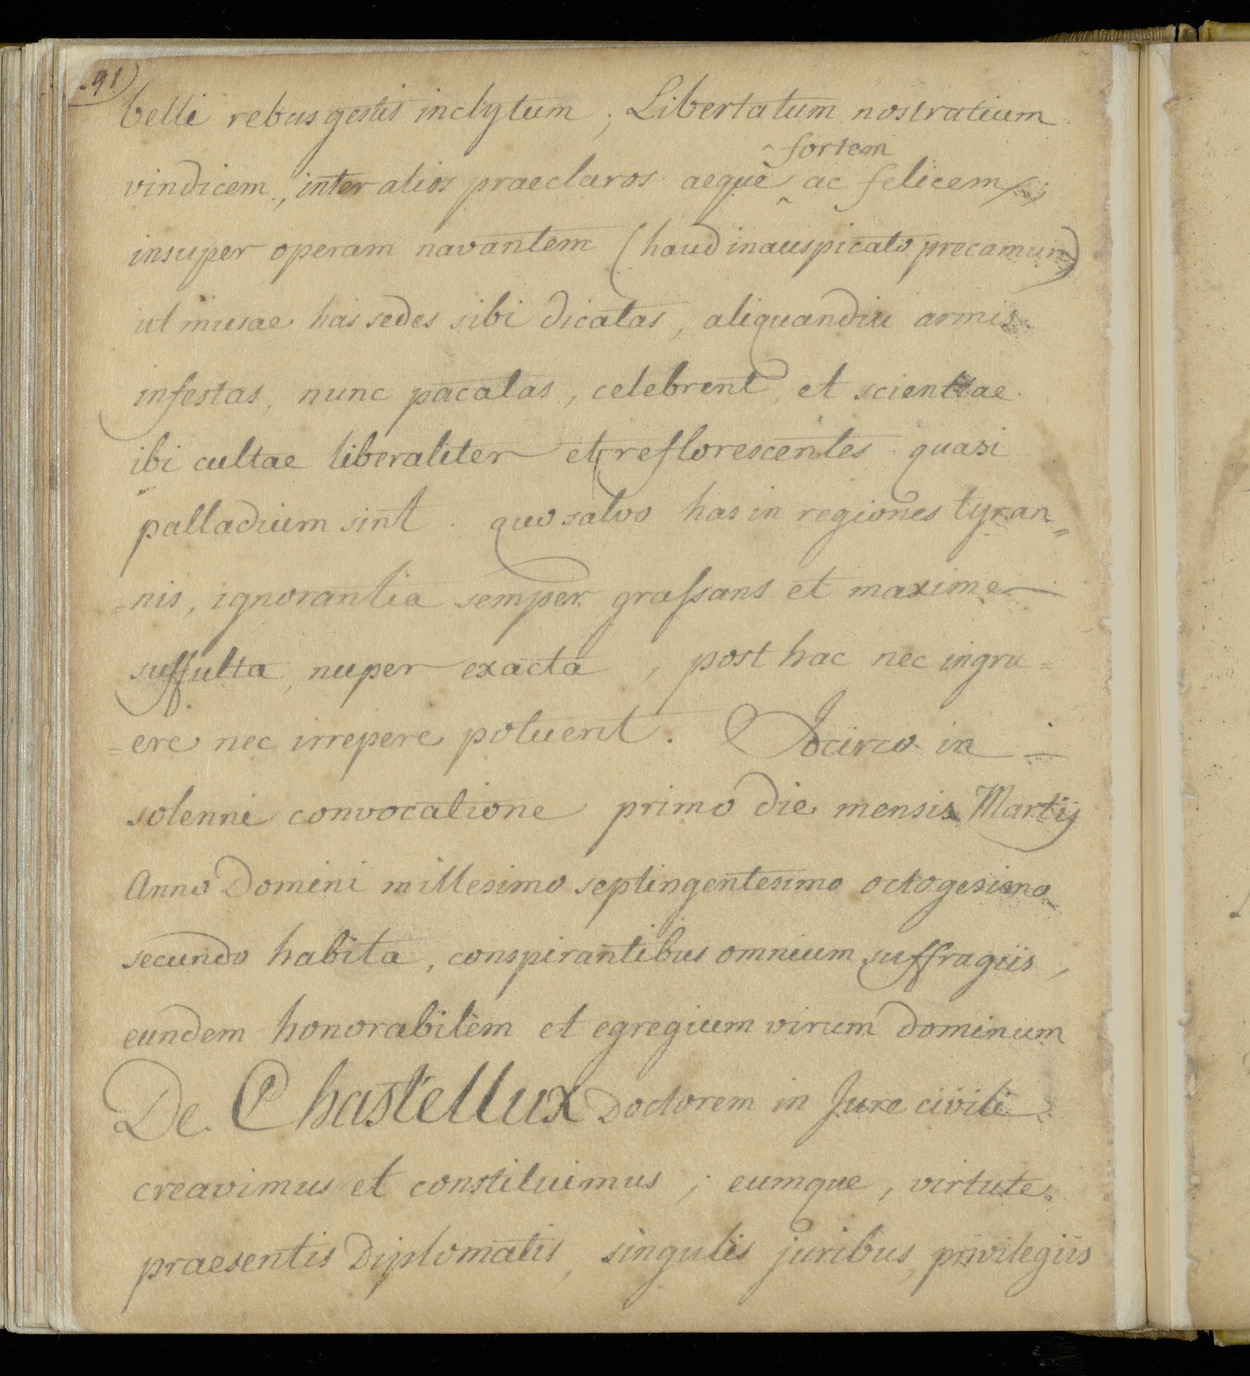 91)
belli rebus gestis inclytum ; Libertatum nostratium
^ fortem
vindicem, inter alios praeclaros aequè ac felicem ;
insuper operam navantem (haud inauspicato precamur)
ut musae has sedes sibi dicatas, aliquandiu armis
infestas, nunc pacatas, celebrent, et scientiae
ibi cultae liberaliter et reflorescentes quasi
palladium sint . quo salvo has in regiones tyran„
=nis, ignorantia semper grassans et maxime
suffulta, nuper exacta , post hac nec ingru=
=ere nec irrepere potuerit . Idcirco in
solenni convocatione primo die mensis Martij
Anno Domini millesimo septingentesimo octogesimo
secundo habita, conspirantibus omnium suffragiis,
eundem honorabilem et egregium virum dominum
De Chastellux Doctorem in Jure civili
creavimus et constituimus ; eumque, virtute
praesentis Diplomatis, singulis juribus, privilegiis